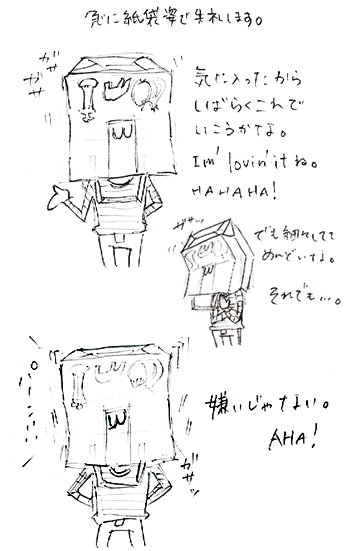 急に紙袋姿で失礼します。
ガサ
ガサ
気に入ったから
しばらくこれで
いこうかな。
Im' lovin' itね。
HAHAHA!
ガサッ
でも細かくて
めんどいな。
それでも…。
嫌いじゃない。
AHA!
ガサッ